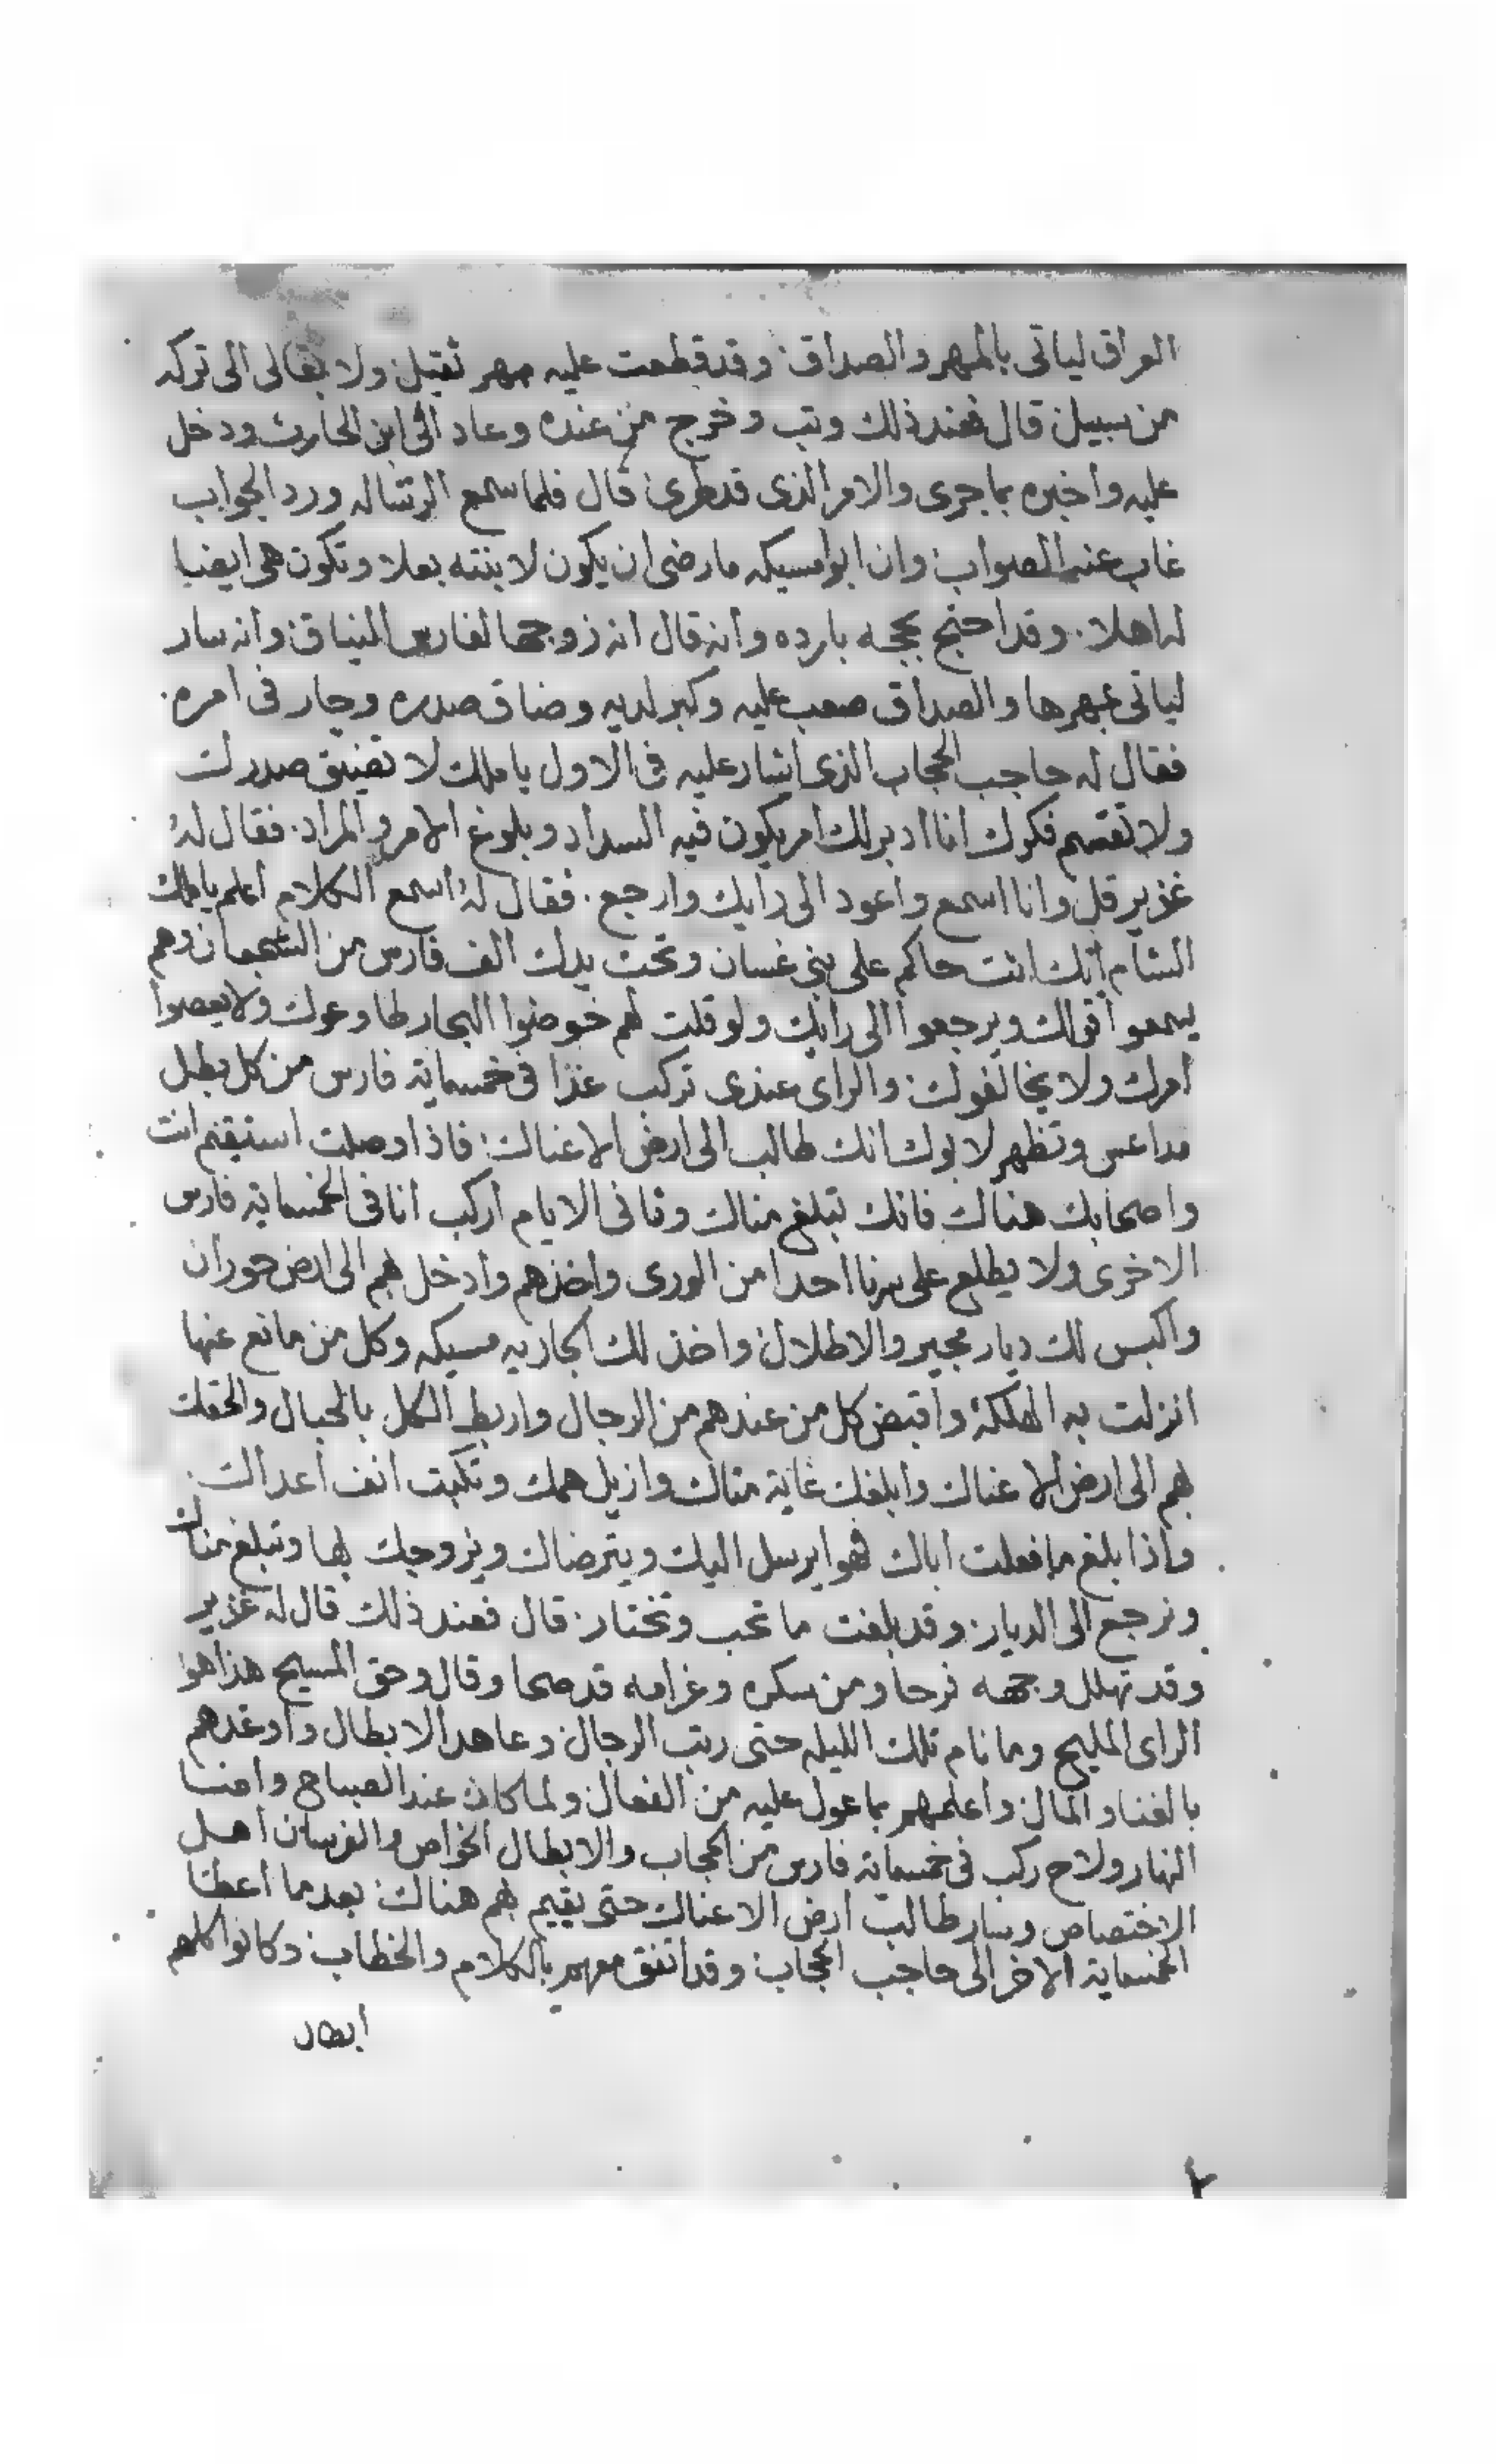 العراق لياتى بالمهر والصداق وقد قطعت عليه مهر ثقيل ولا بقالى الى تركه
من سبيل قال فعند ذلك وثب وخرج من عنده وعاد الى ابن الحارث ودخل
عليه واخبره بما جرى والامر الذى قد طرى قال فلما سمع الرساله ورد الجواب
غاب عنه الصواب وان ابو مسيكه ما رضى ان يكون لابنته بعلا وتكون هى ايضا
له اهلا وقد احتج بحجه بارده وانه قال انه زوجها لفارس النياق وانه سار
لياتى بمهرها والصداق صعب عليه وكبر لديه وضاق صدره وحار فى امره
فقال له حاجب الحجاب الذى اشار عليه فى الاول يا ملك لا تضيق صدرك
ولا تقسم فكرك انا ادبر لك امر يكون فيه السداد وبلوغ الامر والمراد فقال له
غزير قل وانا اسمع واعود الى رايك وارجع فقال له اسمع الكلام اعلم يا ملك
الشام انك انت حاكم على بنى غسان وتحت يدك الف فارس من الشجعان وهم
يسمعوا قولك ويرجعوا الى رايك ولو قلت لهم خوضوا البحار طاوعوك ولا يعصوا
امرك ولا يخالفوك والراى عندى تركب غدا فى خمسماية فارس من كل بطل
مداعس وتظهر لابوك انك طالب الى ارض الاعناك فاذا وصلت استيقم انت
واصحابك هناك فانك تبلغ مناك وثانى الايام اركب انا فى الخمسماية فارس
الاخرى ولا يطلع على سرنا احدا من الورى واخذهم وادخل بهم الى ارض حوران
واكبس لك ديار مجير والاطلال واخذ لك الجاريه مسيكه وكل من مانع عنها
انزلت به الهلكة واقبض كل من عندهم من الرجال واربط الكل بالحبال والحقك
بهم الى ارض الاعناك وابلغك غاية مناك وازيل همك وتكبت انف اعداك
واذا بلغ ما فعلت اباك فهوا يرسل اليك ويترضاك ويزوجك بها وتبلغ مناك
ونرجع الى الديار وقد بلغت ما تحب وتختار قال فعند ذلك قال له غزير
وقد تهلل وجهه فرحا ومن سكره وغرامه قد صحا وقال وحق المسيح هذا هوا
الراى المليح وما نام تلك الليله حتى رتب الرجال وعاهد الابطال واوعدهم
بالغنا والمال واعلمهم بما عول عليه من الفعال ولما كان عند الصباح واضا
النهار ولاح ركب فى خمسماية فارس من الحجاب والابطال الخواص والفرسان اهل
الاختصاص وسار طالب ارض الاعناك حتى يقيم بهم هناك بعد ما اعطا
الخمسماية الاخر الى حاجب الحجاب وقد اتفق معهم بالكلام والخطاب وكانوا كلهم
ابطال